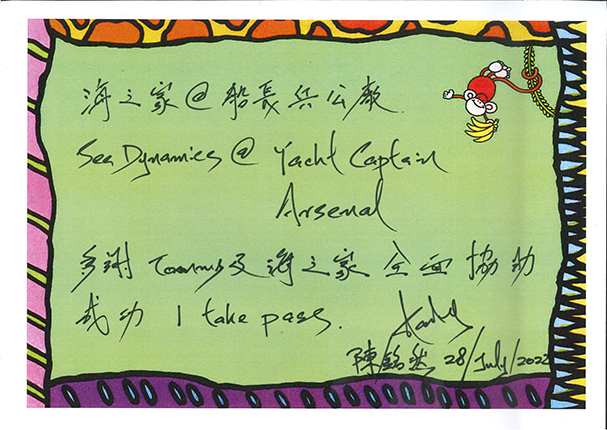 海之家@船長兵公廠
Sea Dynamics @ Yacht Captain
Arsenal
多謝 Tommy及海之家 全面協助
成功 1 take pass.
陳銘然 28/July/2022